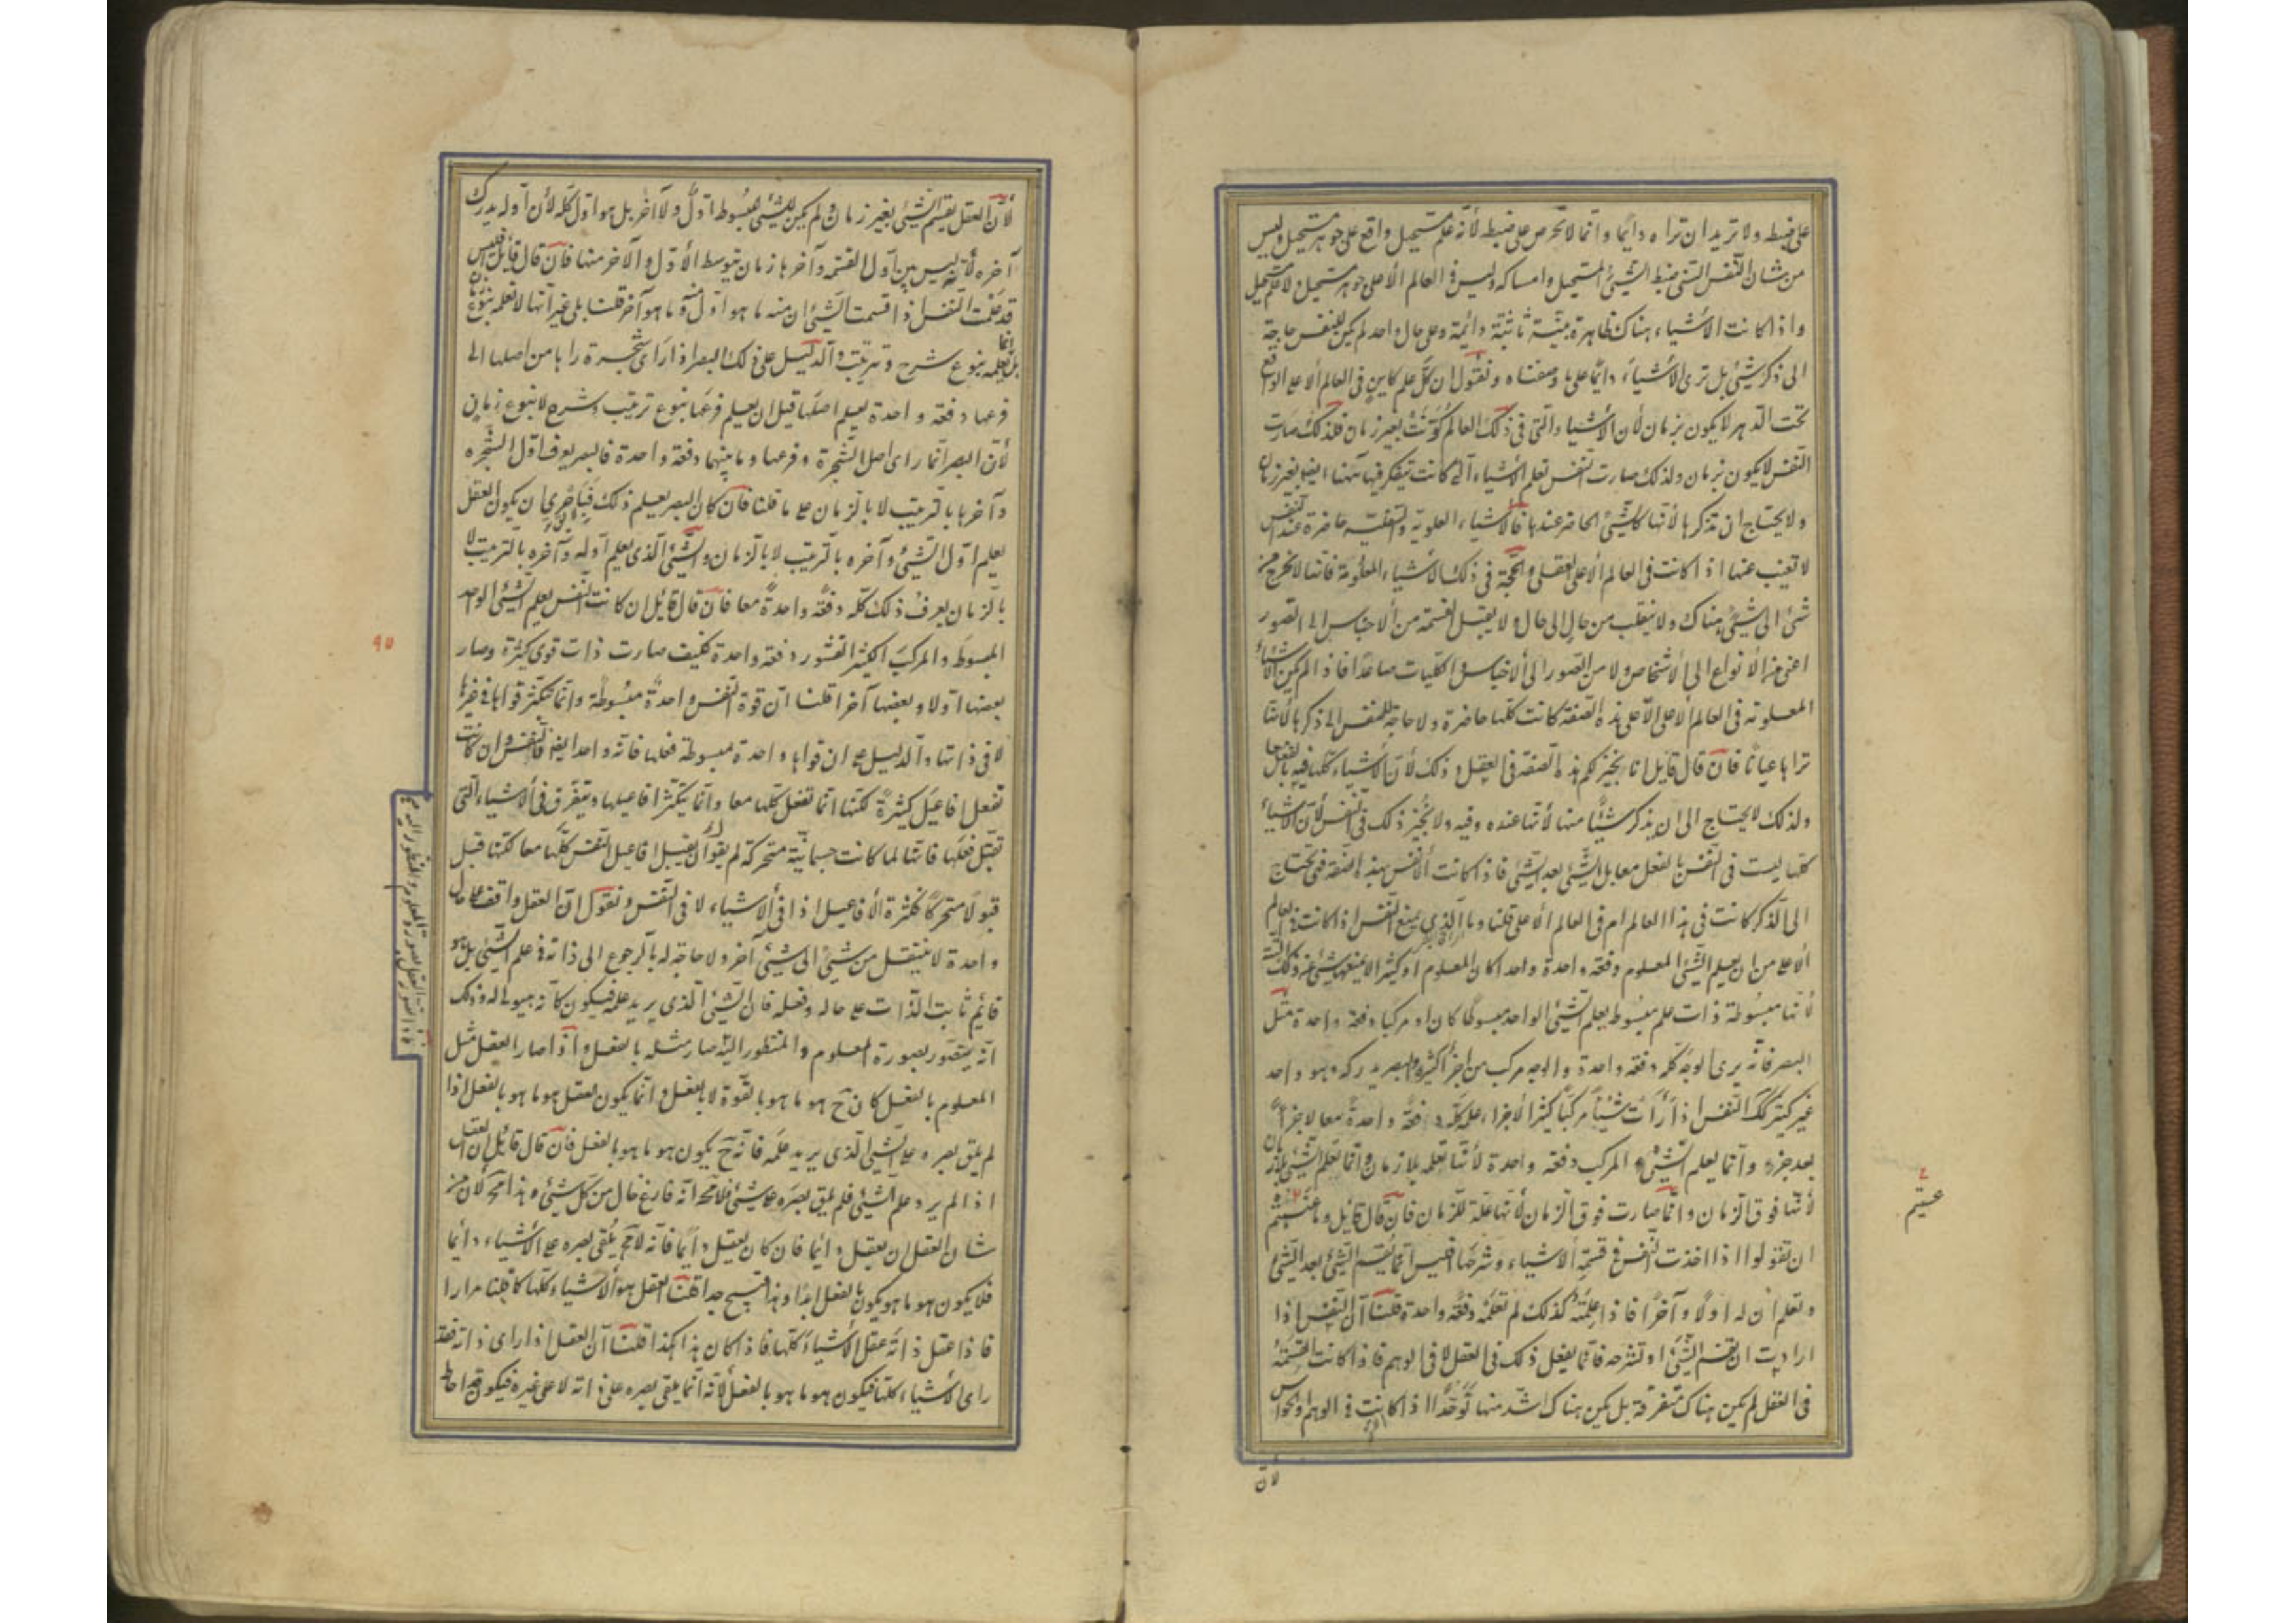 على ضبطه ولا تريد ان تراه دائما وانما لا تحرص على ضبطه لأنه علم مستحيل واقع على جوهر مستحيل وليس
من شان النفس التى ضبط الشيئ المستحيل وامساكه وليس فى العالم الاعلى جوهر مستحيل ولا علم مستحيل
واذا كانت الأشياء هناك ظاهرة بينة ثابتة دائمة وعلى حال واحد لم يكن للنفس حاجة
الى ذكر شيئ بل ترى الأشياء دائما على ما وصفناه ونقول ان كل علم كاين فى العالم الاعلى الواقع
تحت الدهر لا يكون بزمان لأن الأشياء التى فى ذلك العالم كونت بغير زمان فلذلك صارت
النفس لا يكون بزمان ولذلك صارت النفس تعلم الأشياء التى كانت تتفكر فيها ههنا ايضا بغير زمان
ولا يحتاج ان تذكرها لأنها كالشيئ الحاضر عندها فالأشياء العلوية والسفلية حاضرة عند النفس
لا تغيب عنها اذا كانت فى العالم الأعلى العقلى والحجة فى ذلك الأشياء المعلومة فانها لا تخرج من
شئ الى شيئ هناك ولا ينقلب من حال الى حال ولا يقبل القسمة من الأجناس الى الصور
اعنى من الأنواع الى الأشخاص ولا من الصور الى الأجناس والكليات صاعدا فاذا لم يكن الأشياء
المعلومة فى العالم الاعلى الا على هذه الصفة كانت كلها حاضرة ولا حاجة للنفس الى ذكرها لأنها
تراها عيانا فان قال قايل انا نجيز لكم هذه الصفة فى العقل وذلك لأن الأشياء كلها فيه بالفعل معا
ولذلك لا يحتاج الى ان يذكر شيئا منها لأنها عنده وفيه ولا نجيز ذلك فى النفس لأن الأشياء
كلها ليست فى النفس بالفعل معا بل الشيئ بعد الشيئ فاذا كانت النفس بهذه الصفة فهى تحتاج
الى الذكر كانت فى هذا العالم ام فى العالم الأعلى قلنا وما الذى يمنع النفس اذا كانت فى العالم
الأعلى من ان يعلم الشيئ المعلوم دفعة واحدة واحدا كان المعلوم او كثيرا لا يمنعها شيئ من ذلك البتة
لأنها مبسوطة ذات علم مبسوط يعلم الشيئ الواحد مبسوطا كان او مركبا دفعة واحدة مثل
البصر فانه يرى الوجه كله دفعة واحدة والوجه مركب من اجزأ كثيرة والبصر يدركه وهو واحد
غير كثير كك النفس اذا رأت شيئا مركبا كثير الأجزاء علمته كله دفعة واحدة معا لا جزأ
بعد جزء وانما يعلم الشيئ المركب دفعة واحدة لأنها تعلمه بلا زمان وانما تعلم الشيئ بلا زمان
لأنها فوق الزمان وانما صارت فوق الزمان لأنها علة للزمان فان قال قايل وما عسيتم
ان تقولوا اذا اخذت النفس فى قسمة الأشياء وشرحها افليس انما يقسم الشيئ بعد الشيئ
وتعلم ان له اولا وآخرا فاذا علمته كذلك لم تعلمه دفعة واحدة قلنا ان النفس اذا
ارادت ان تقسم الشيئ او تشرحه فانما يفعل ذلك فى العقل لا فى الوهم فاذا كانت القسمة
فى العقل لم يكن هناك متفرقة بل يكن هناك اشد منها توحدا اذا كانت فى الوهم والحواس
لأن
عسيتم
لأن العقل يقسم الشيئ بغير زمان ولم يكن للشيئ المبسوط اول ولا آخر بل هو اول كله لأن اوله يدرك
آخره لأنه ليس بين اول القسمة وآخرها زمان يتوسط الأول والآخر منها فان قال قايل افليس
قد علمت النفس اذا قسمت الشيئ ان منه ما هو اول ومنه ما هو آخر قلنا بلى غير انها لا تعلمه بنوع زمان
بل انما تعلمه بنوع شرح وترتيب والدليل على ذلك البصر اذا رأى شجرة رآها من اصلها الى
فرعها دفعة واحدة يعلم اصلها قبل ان يعلم فرعها بنوع ترتيب وشرح لا بنوع زمان
لأن البصر انما راى اصل الشجرة وفرعها وما بينهما دفعة واحدة فالبصر يعرف اول الشجرة
وآخرها بالترتيب لا بالزمان على ما قلنا فان كان البصر يعلم ذلك فبالحرى ان يكون العقل
يعلم اول الشيئ وآخره بالترتيب لا بالزمان والشيئ الذى يعلم اوله وآخره بالترتيب لا
بالزمان يعرف ذلك كله دفعة واحدة معا فان قال قايل ان كانت النفس يعلم الشيئ الواحد
المبسوط والمركب الكثير القشور دفعة واحدة فكيف صارت ذات قوى كثيرة وصار
بعضها اولا وبعضها آخرا قلنا ان قوة النفس واحدة مبسوطة وانما يتكثر قواها فى غيرها
لا فى ذاتها والدليل على ان قواها واحدة مبسوطة فعلها فانه واحد ايضا فالنفس وان كانت
تفعل افاعيل كثيرة لكنها انما تفعل كلها معا وانما يتكثر افاعيلها ويتفرق فى الأشياء التى
تقبل فعلها فانها لما كانت جسمانية متحركة لم يقو ان يقبل افاعيل النفس كلها معا لكنها قبل
قبولا متحركا فكثرة الأفاعيل اذا فى الأشياء لا فى النفس ونقول ان العقل واقف على حال
واحدة لا ينتقل من شيئ الى شيئ آخر ولا حاجة له بالرجوع الى ذاته فى علم الشيئ بل هو
قائم ثابت الذات على حاله وفعله فان الشيئ الذى يريد علمه فيكون كأنه هيولى له وذلك
انه يتصور بصورة المعلوم والمنظور اليه صار مثله بالفعل واذا صار العقل مثل
المعلوم بالفعل كان ح هو ما هو بالقوة لا بالفعل وانما يكون العقل هو ما هو بالفعل اذا
لم يلق بصره على الشيئ الذى يريد علمه فانه ح يكون هو ما هو بالفعل فان قال قائل ان العقل
اذا لم يرد علم الشيئ فلم يلق بصره على شيئ فلا محة انه فارغ خال من كل شيئ وهذا مح لأن من
شان العقل ان يعقل دائما فان كان يعقل دائما فانه لا مح يلقى بصره على الأشياء دائما
فلا يكون هو ما هو يكون بالفعل ابدا وهذا قبيح جدا قلنا العقل هو الأشياء كلها كما قلنا مرارا
فاذا عقل ذاته عقل الأشياء كلها فاذا كان هذا هكذا قلنا ان العقل اذا راى ذاته فقد
راى الأشياء كلها فيكون هو ما هو بالفعل لأنه انما يلقى بصره على ذاته لا على غيره فيكون قد احاط
٩٥
فاذا تصور العقل بصورة المعلوم والمنظور اليه